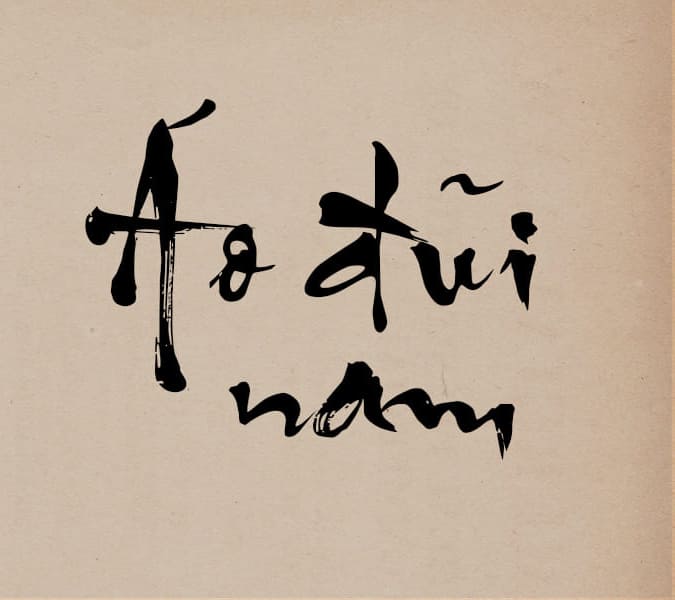 Áo đũi
nam